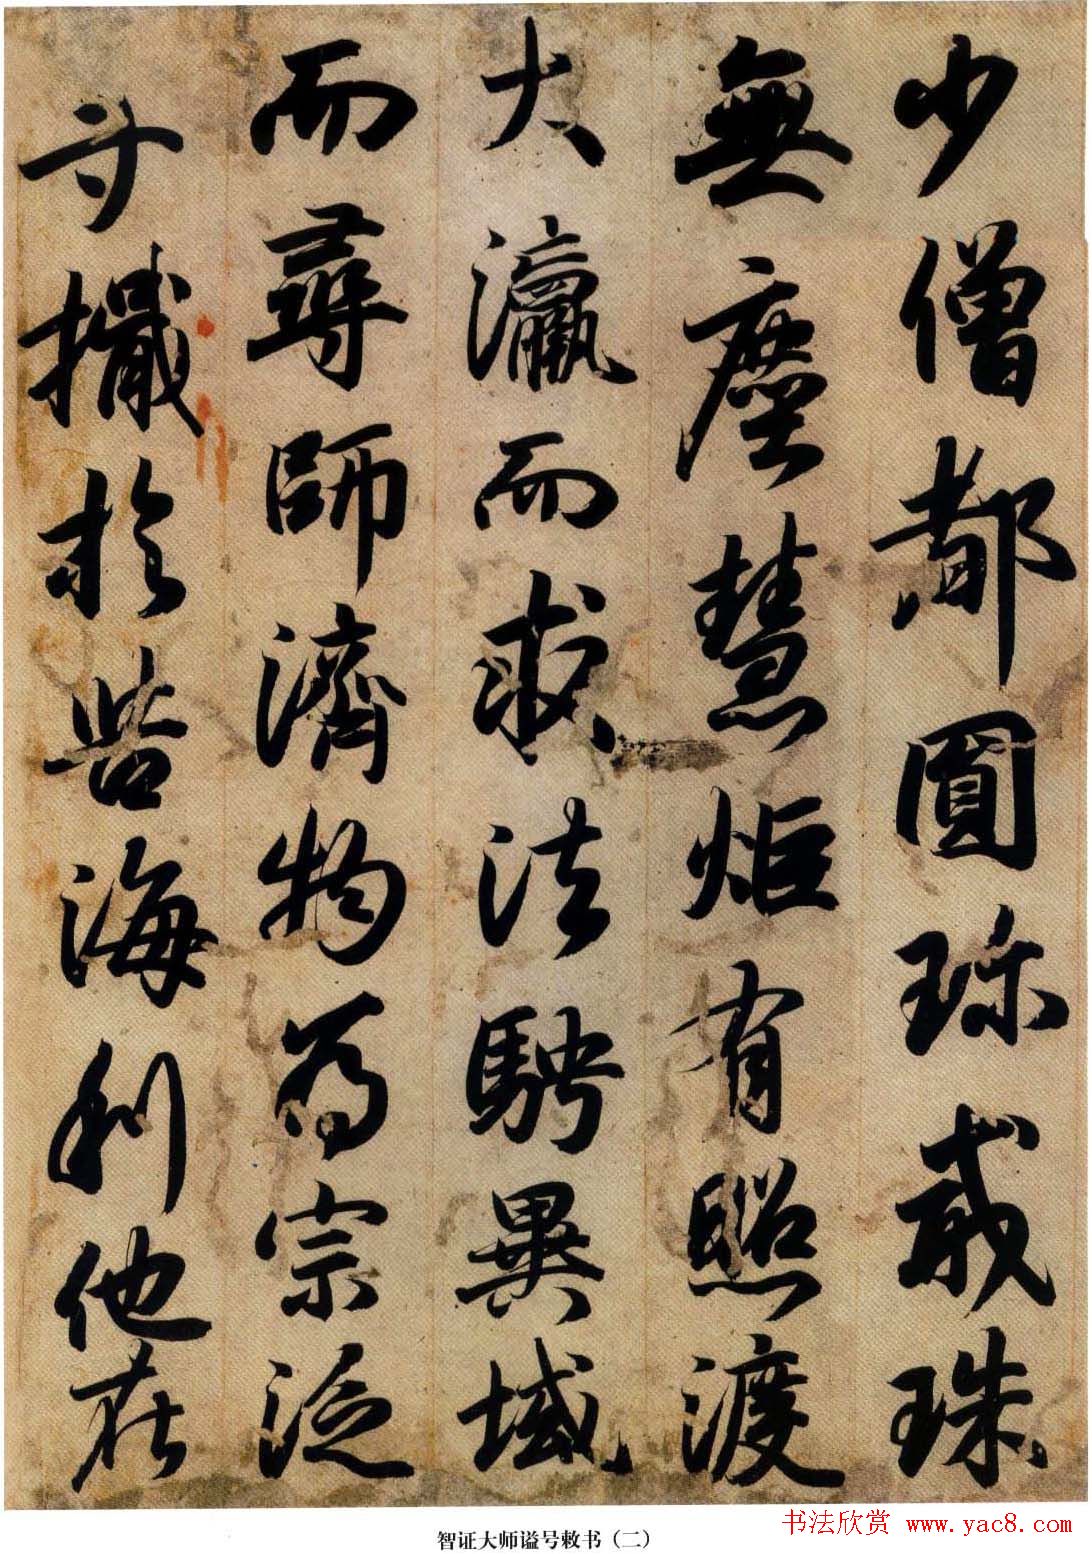 少僧都圓珎戒珠
無塵慧炬有照渡
大瀛而求法騁異域
而尋師濟物為宗泛
寸檝於苦海利他在
智证大师谥号敕书（二）
书法欣赏 www.yac8.com